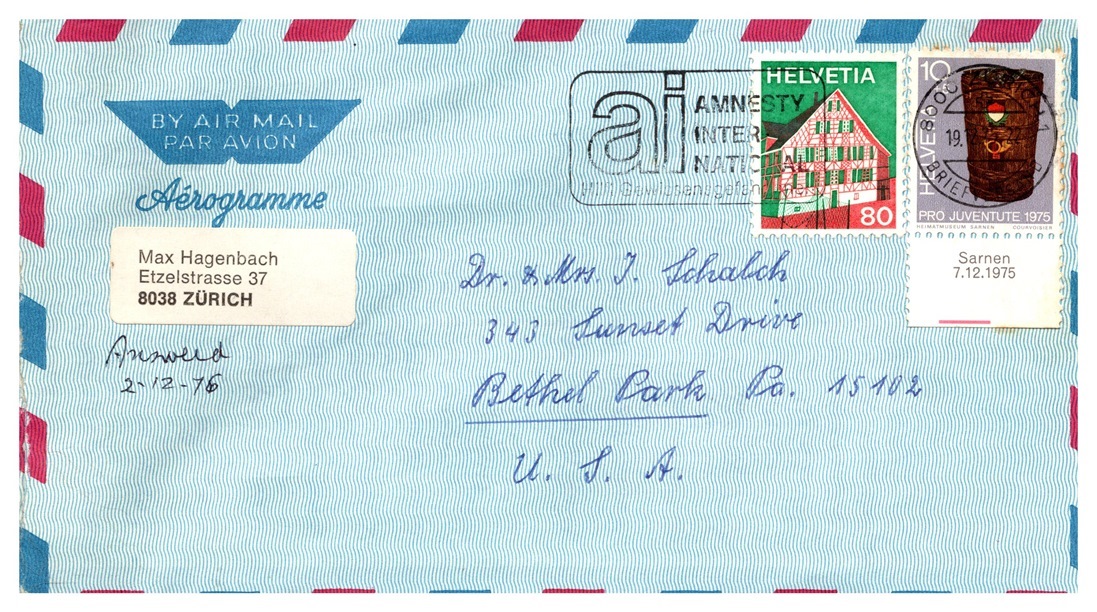 BY AIR MAIL
PAR AVION
Aérogramme
Max Hagenbach
Etzelstrasse 37
8038 ZÜRICH
Answerd
2-12-76
ai AMNESTY
INTER
NATIONAL
HELVETIA
80
10
HELVETIA
PRO JUVENTUTE 1975
HEIMATMUSEUM SARNEN COURVOISIER
8000
19.
BRIEF
Sarnen
7.12.1975
Dr. & Mrs. J. Schalch
343 Sunset Drive
Bethel Park Pa. 15102
U. S. A.